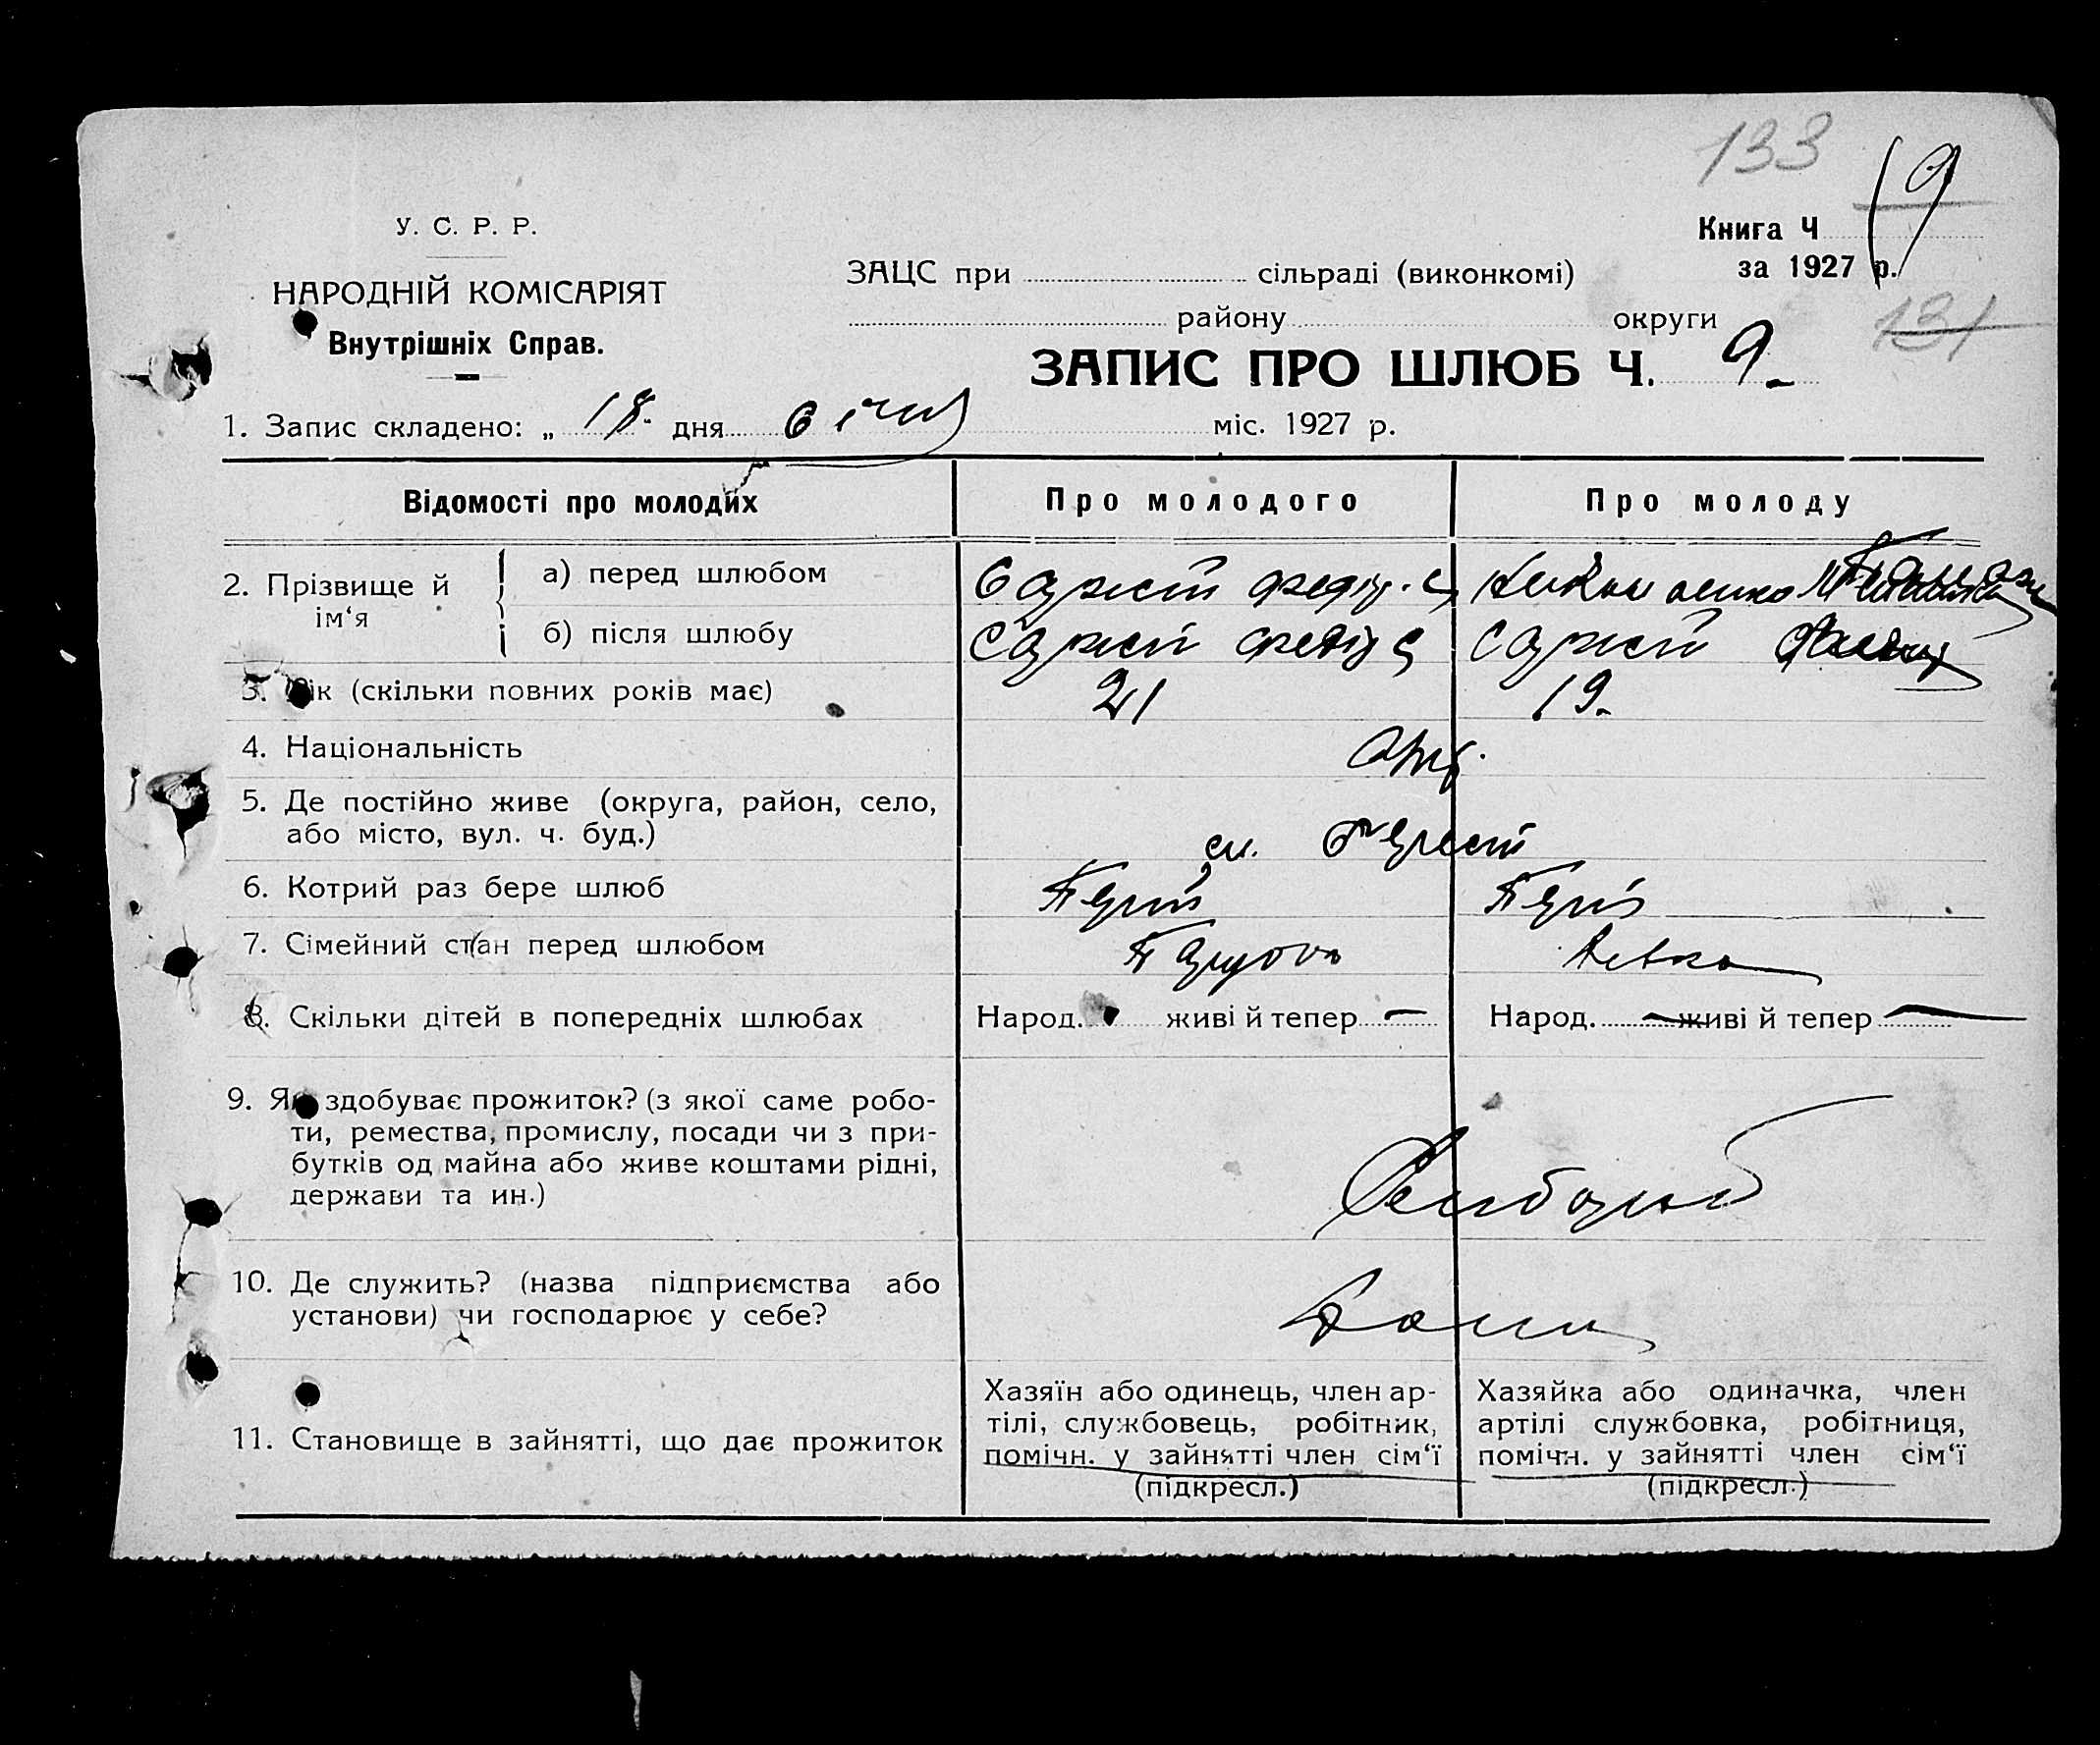 133
19
У. С. Р. Р.
Книга Ч
НАРОДНІЙ КОМІСАРІЯТ
ЗАЦС при сільраді (виконкомі)
за 1927 р.
Внутрішніх Справ.
району округи
131
ЗАПИС ПРО ШЛЮБ Ч. 9
1. Запис складено: „ 18 дня січня міс. 1927 р.
Відомості про молодих
Про молодого
Про молоду
2. Прізвище й ім‘я
а) перед шлюбом
б) після шлюбу
3. Вік (скільки повних років має)
21
19
4. Національність
Укр.
5. Де постійно живе (округа, район, село,
або місто, вул. ч. буд.)
6. Котрий раз бере шлюб
7. Сімейний стан перед шлюбом
Парубок
Дівка
8. Скільки дітей в попередніх шлюбах
Народ. живі й тепер —
Народ. — живі й тепер —
9. Як здобуває прожиток? (з якої саме робо-
ти, ремества, промислу, посади чи з при-
бутків од майна або живе коштами рідні,
держави та ин.)
Хлібороб
10. Де служить? (назва підприємства або
установи) чи господарює у себе?
Дома
11. Становище в зайнятті, що дає прожиток
Хазяїн або одинець, член ар-
тілі, службовець, робітник,
помічн. у зайнятті член сім‘ї
(підкресл.)
Хазяйка або одиначка, член
артілі службовка, робітниця,
помічн. у зайнятті член сім‘ї
(підкресл.)